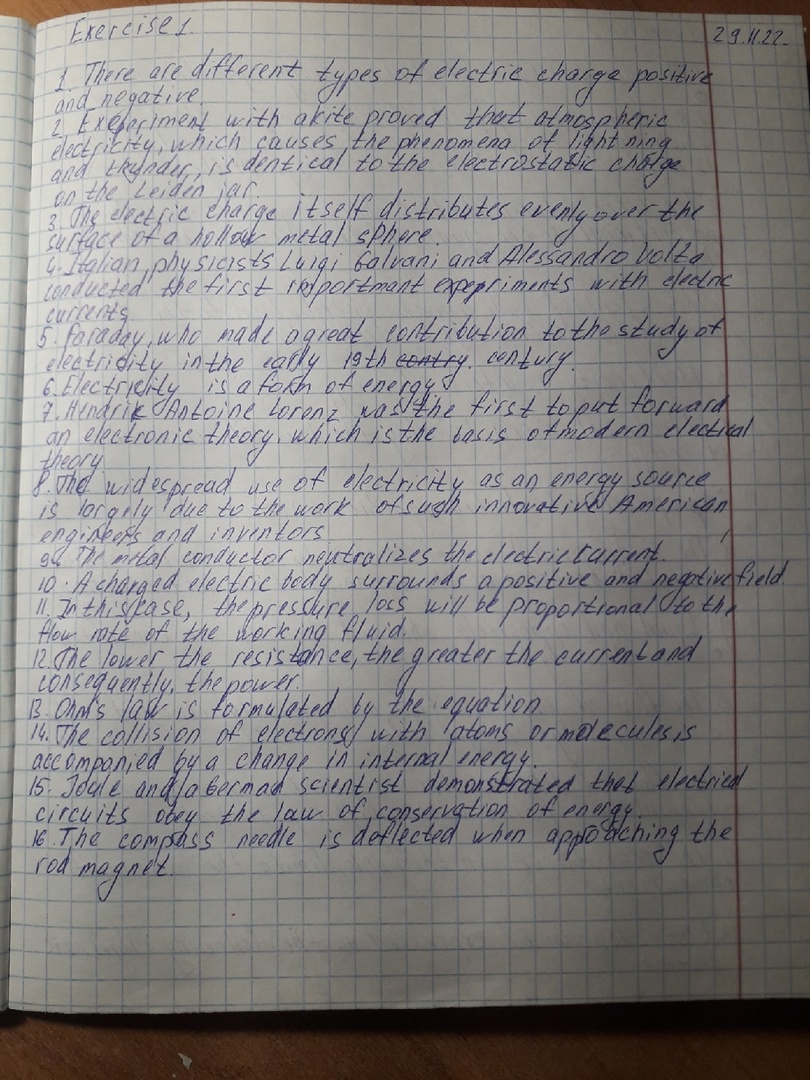 Exercise 1.
29.11.22.
1. There are different types of electric charge positive
and negative.
2. Experiment with a kite proved that atmospheric
electricity, which causes the phenomena of lightning
and thynder, is dentical to the electrostatic charge
on the Leiden jar.
3. The electric charge itself distributes evenly over the
surface of a hollow metal sphere.
4. Italian physicists Luigi Galvani and Alessandro Volta
conducted the first importmant expepriments with electric
currents
5. Faraday, who made a great contribution to the study of
electricity in the early 19th contry. century.
6. Electricity is a form of energy
7. Hendrik Antoine Lorenz was the first to put forward
an electronic theory, which is the basis of modern electrical
theory
8. The widespread use of electricity as an energy source
is largely due to the work of sugh innovative American
engineers and inventors
9. The metal conductor neutralizes the electric current.
10. A charged electric body surrounds a positive and negative field
11. In this case, the pressure loss will be proportional to the
flow rate of the working fluid.
12. The lower the resistance, the greater the current and
consequently, the power.
13. Ohm's law is formulated by the equation
14. The collision of electrons with atoms or molecules is
accompanied by a change in internal energy.
15. Joule and a German scientist demonstrated that electrical
circuits obey the law of conservation of energy
16. The compass needle is deflected when approaching the
rod magnet.